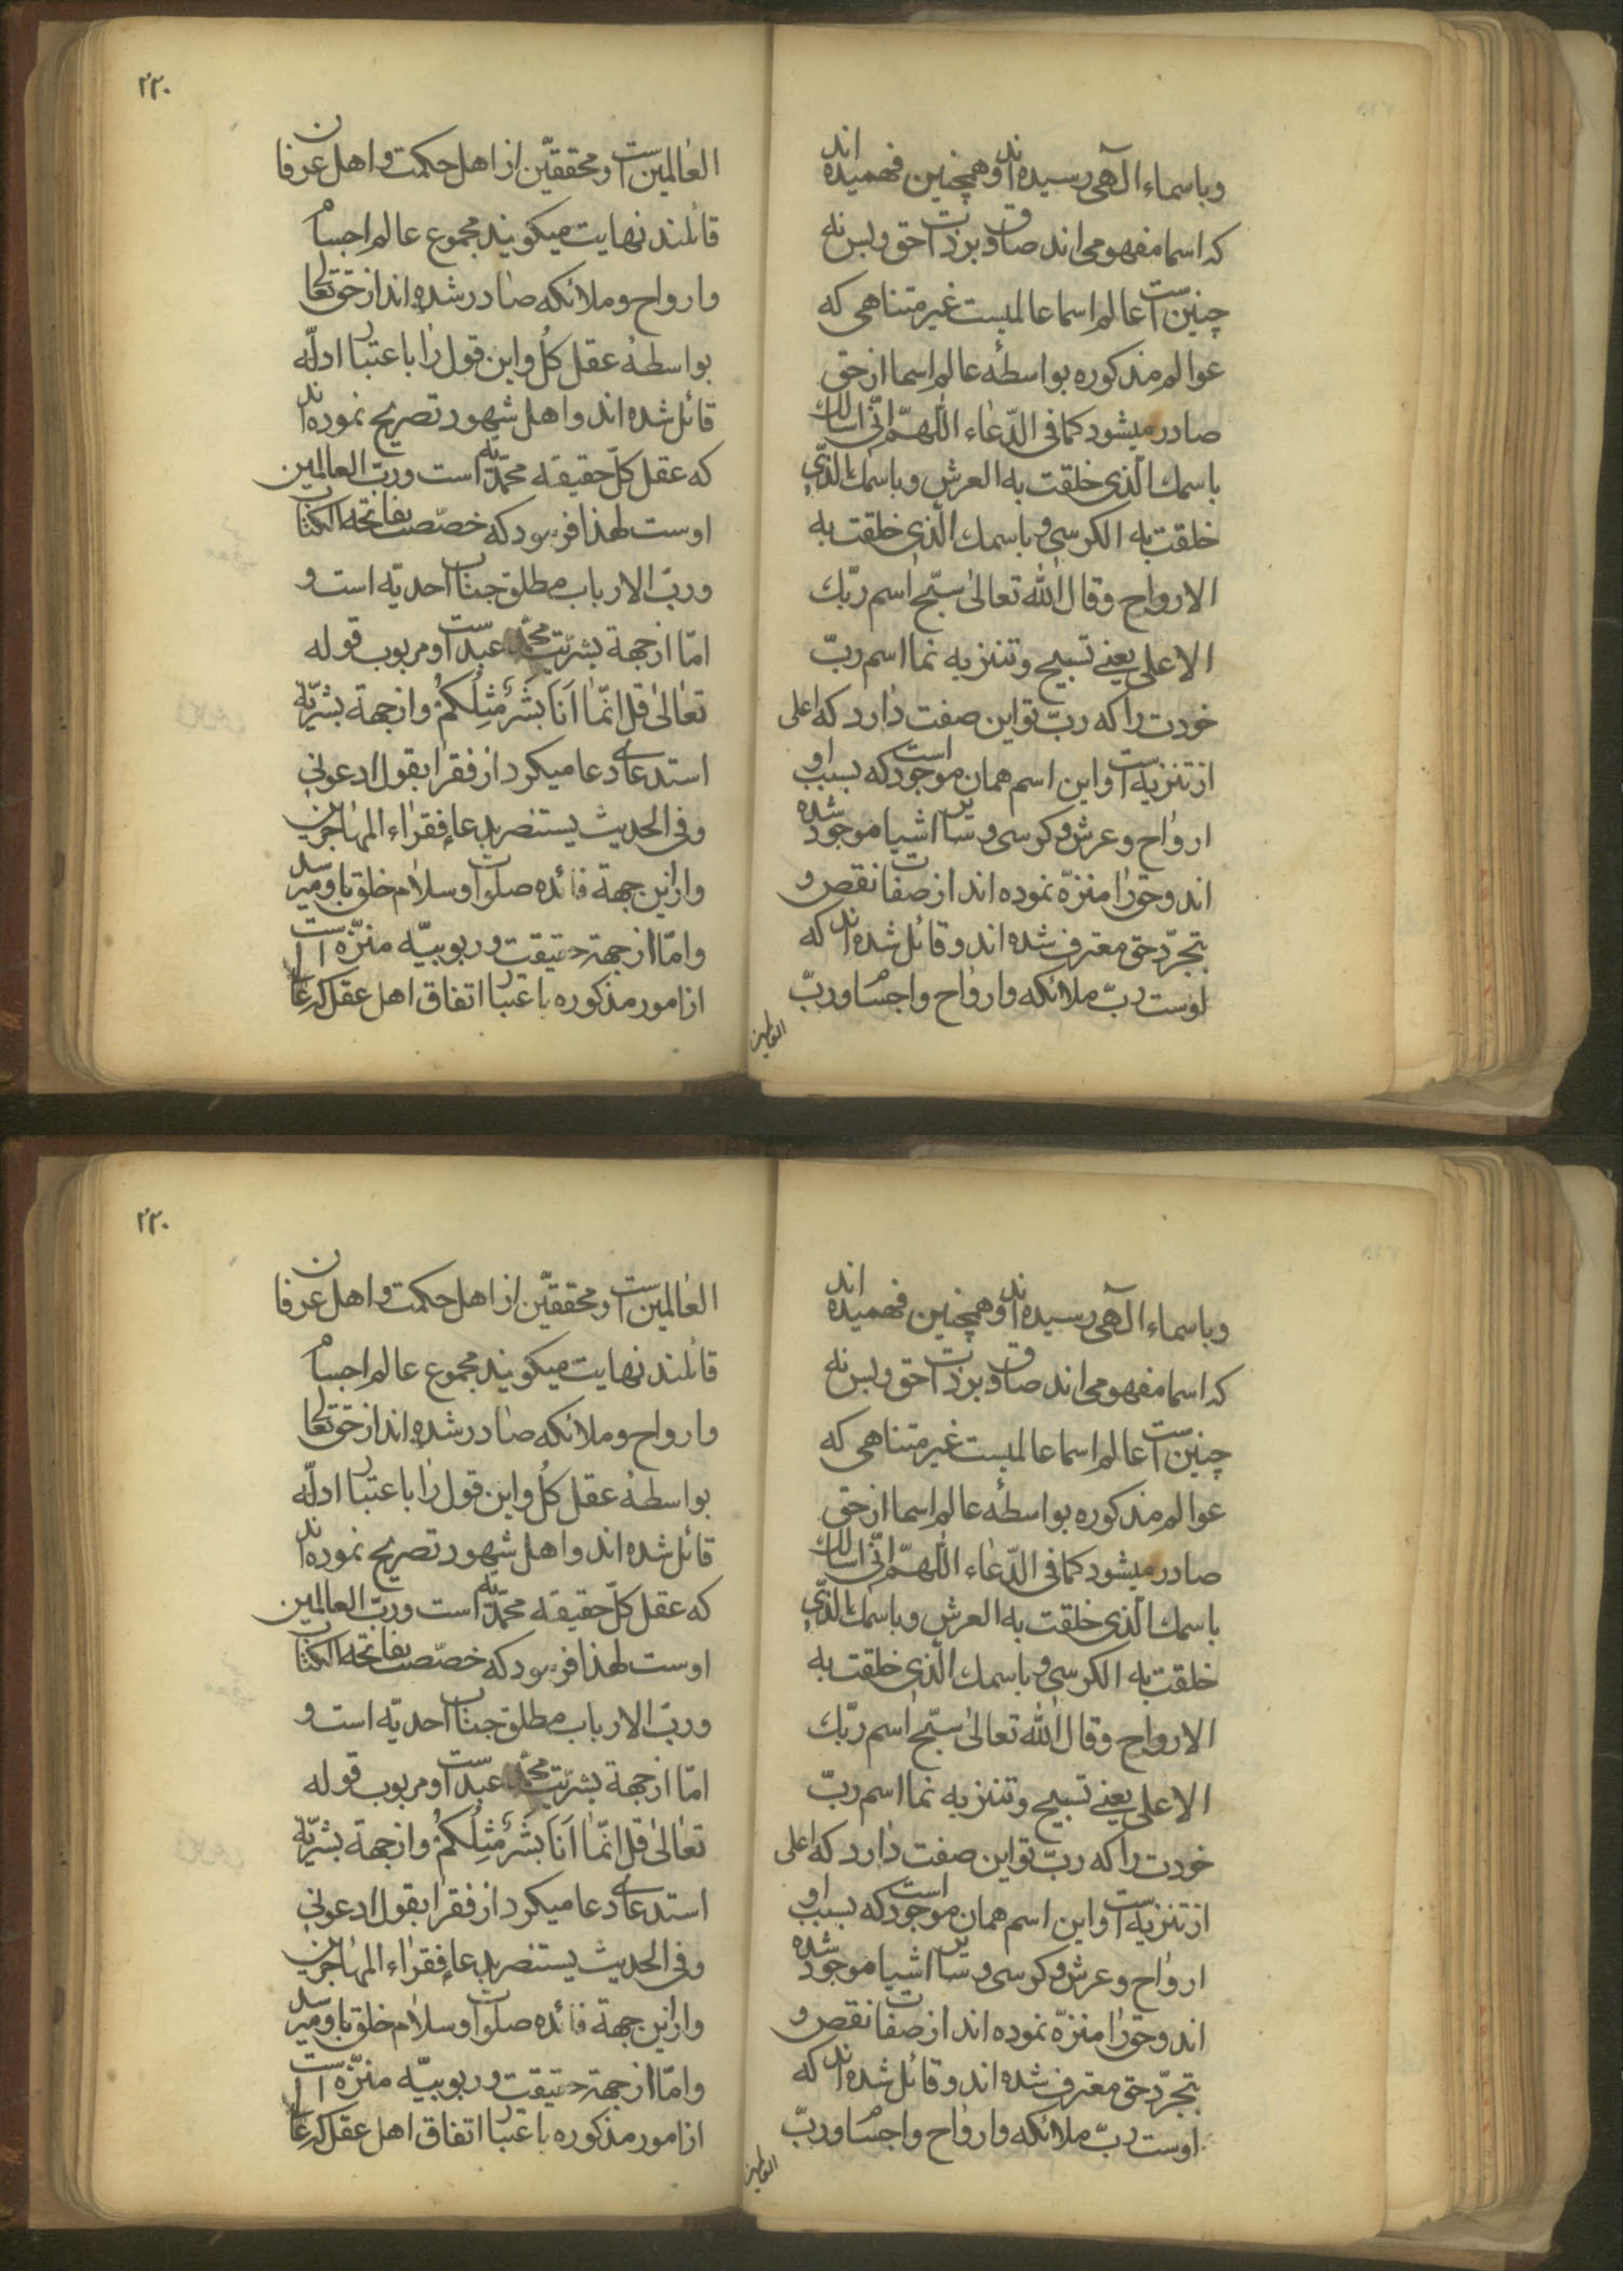 وباسماء الٓهی رسیده اند وهمچنین فهمیده اند
که اسما مفهومی اند صادق بر ذات حق وبس نه
چنین است عالم اسما عالمیست غیر متناهی که
عوالم مذکوره بواسطهٔ عالم اسما از حق
صادر میشود کما فی الدّعاء اللّهمّ انّی اسالك
باسمك الّذی خلقت به العرش وباسمك الّذی
خلقت به الکرسی وباسمك الّذی خلقت به
الارواح وقال الله تعالیٰ سبّح اسم ربّك
الاعلی یعنے تسبیح وتنزیه نما اسم ربّ
خودت را که ربّ تو این صفت دارد که اعلی
از تنزیه است واین اسم همان موجود است که بسبب او
ارواح وعرش وکرسی وسایر اشیا موجود شده
اند وحق را منزّه نموده اند از صفات نقص و
بتجرّد حق معترف شده اند وقائل شده اند که
اوست ربّ ملائکه وارواح واجسام وربّ
العالمین
۲۲۰
العالمین است ومحققّین از اهل حکمت واهل عرفان
قائلند نهایت میکویند مجموع عالم اجسام
وارواح وملائکه صادر شده اند از حق تعالی
بواسطهٔ عقل کُل واین قول را باعتبار ادلّه
قائل شده اند واهل شهود تصریح نموده اند
که عقل کلّ حقیقه محمّدیّه است وربّ العالمین
اوست لهذا فرمود که خصّصت بفاتحه الکتاب
وربّ الارباب مطلق جناب احدیّه است و
امّا از جهة بشریّت محمّد عبد است ومربوب قوله
تعالیٰ قل انّما اَنَا بَشَرٌ مِثْلُکُمْ واز جهة بشریّة
استدعای دعا میکرد از فقرا بقول ادعونی
وفی الحدیث یستنصر بدعاء فقراء المهاجرین
وازاین جهة فائده صلوات وسلام خلق باو میرسد
وامّا از جهة حقیقت وربوبیّه منزّه است
از امور مذکوره باعتبار اتفاق اهل عقل که عالم
وباسماء الٓهی رسیده اند وهمچنین فهمیده اند
که اسما مفهومی اند صادق بر ذات حق وبس نه
چنین است عالم اسما عالمیست غیر متناهی که
عوالم مذکوره بواسطهٔ عالم اسما از حق
صادر میشود کما فی الدّعاء اللّهمّ انّی اسالك
باسمك الّذی خلقت به العرش وباسمك الّذی
خلقت به الکرسی وباسمك الّذی خلقت به
الارواح وقال الله تعالیٰ سبّح اسم ربّك
الاعلی یعنے تسبیح وتنزیه نما اسم ربّ
خودت را که ربّ تو این صفت دارد که اعلی
از تنزیه است واین اسم همان موجود است که بسبب او
ارواح وعرش وکرسی وسایر اشیا موجود شده
اند وحق را منزّه نموده اند از صفات نقص و
بتجرّد حق معترف شده اند وقائل شده اند که
اوست ربّ ملائکه وارواح واجسام وربّ
العالمین
۲۲۰
العالمین است ومحققّین از اهل حکمت واهل عرفان
قائلند نهایت میکویند مجموع عالم اجسام
وارواح وملائکه صادر شده اند از حق تعالی
بواسطهٔ عقل کُل واین قول را باعتبار ادلّه
قائل شده اند واهل شهود تصریح نموده اند
که عقل کلّ حقیقه محمّدیّه است وربّ العالمین
اوست لهذا فرمود که خصّصت بفاتحه الکتاب
وربّ الارباب مطلق جناب احدیّه است و
امّا از جهة بشریّت محمّد عبد است ومربوب قوله
تعالیٰ قل انّما اَنَا بَشَرٌ مِثْلُکُمْ واز جهة بشریّة
استدعای دعا میکرد از فقرا بقول ادعونی
وفی الحدیث یستنصر بدعاء فقراء المهاجرین
وازاین جهة فائده صلوات وسلام خلق باو میرسد
وامّا از جهة حقیقت وربوبیّه منزّه است
از امور مذکوره باعتبار اتفاق اهل عقل که عالم